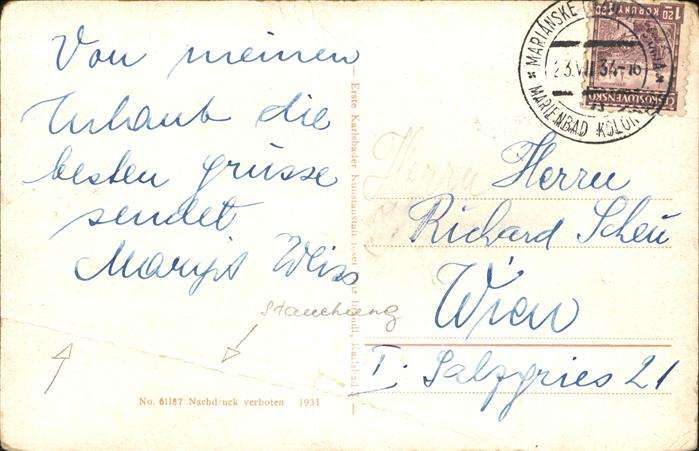 Von meinen
Urlaub die
besten Grüsse
sendet
Weiss
Stauchung
No. 61187 Nachdruck verboten 1931
Erste Karlsbader Kunstanstalt Karlsbad
MARIÁNSKÉ
23.VII.34-16
MARIENBAD KOLON
1.20
KORUNY
ČESKOSLOVENSKO
Herrn
Herrn
Richard Scheu
Wien
I. Salzgries 21